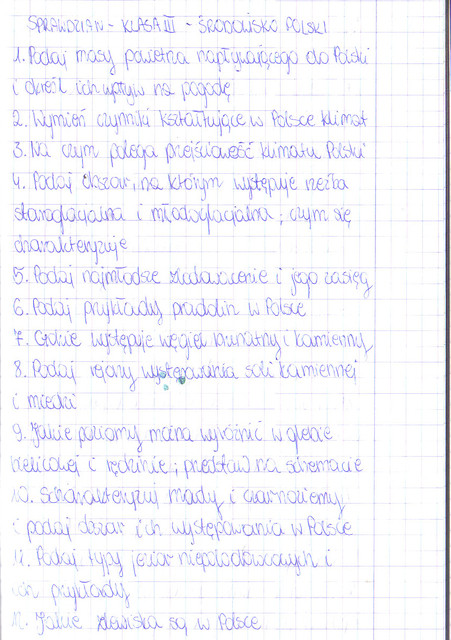 SPRAWDZIAN - KLASA III - ŚRODOWISKO POLSKI
1. Podaj masy powietrza napływającego do Polski
i określ ich wpływ na pogodę
2. Wymień czynniki kształtujące w Polsce klimat
3. Na czym polega przejściowość klimatu Polski
4. Podaj obszar, na którym występuje rzeźba
staroglacjalna i młodoglacjalna; czym się
charakteryzuje
5. Podaj najmłodsze zlodowacenie i jego zasięg
6. Podaj przykłady pradolin w Polsce
7. Gdzie występuje węgiel brunatny i kamienny
8. Podaj rejony występowania soli kamiennej
i miedzi
9. Jakie poziomy można wyróżnić w glebie
bielicowej i rędzinie; przedstaw na schemacie
10. Scharakteryzuj mady i czarnoziemy
i podaj obszar ich występowania w Polsce
11. Podaj typy jezior niepolodowcowych i
ich przykłady
12. Jakie zlewiska są w Polsce